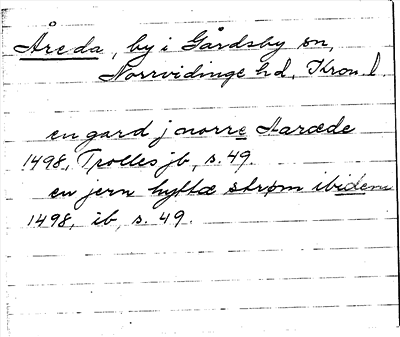 Åreda, by i Gårdsby sn,
Norrvidinge hd, Kron. l.
en gard j norre Aaræde
1498, Trolles jb, s. 49.
en jern hyttæ strøm ibidem
1498, ib, s. 49.